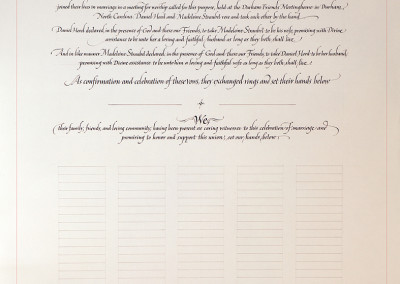 joined their lives in marriage in a meeting for worship called for this purpose, held at the Durham Friends Meetinghouse in Durham,
North Carolina. Daniel Hord and Madeleine Straubel rose and took each other by the hand.
Daniel Hord declared, in the presence of God and these our Friends, to take Madeleine Straubel to be his wife, promising with Divine
assistance to be unto her a loving and faithful husband as long as they both shall live.
And in like manner Madeleine Straubel declared, in the presence of God and these our Friends, to take Daniel Hord to be her husband,
promising with Divine assistance to be unto him a loving and faithful wife as long as they both shall live.
As confirmation and celebration of these vows, they exchanged rings and set their hands below
We,
their family, friends, and loving community, having been present as caring witnesses to this celebration of marriage and
promising to honor and support this union, set our hands below: